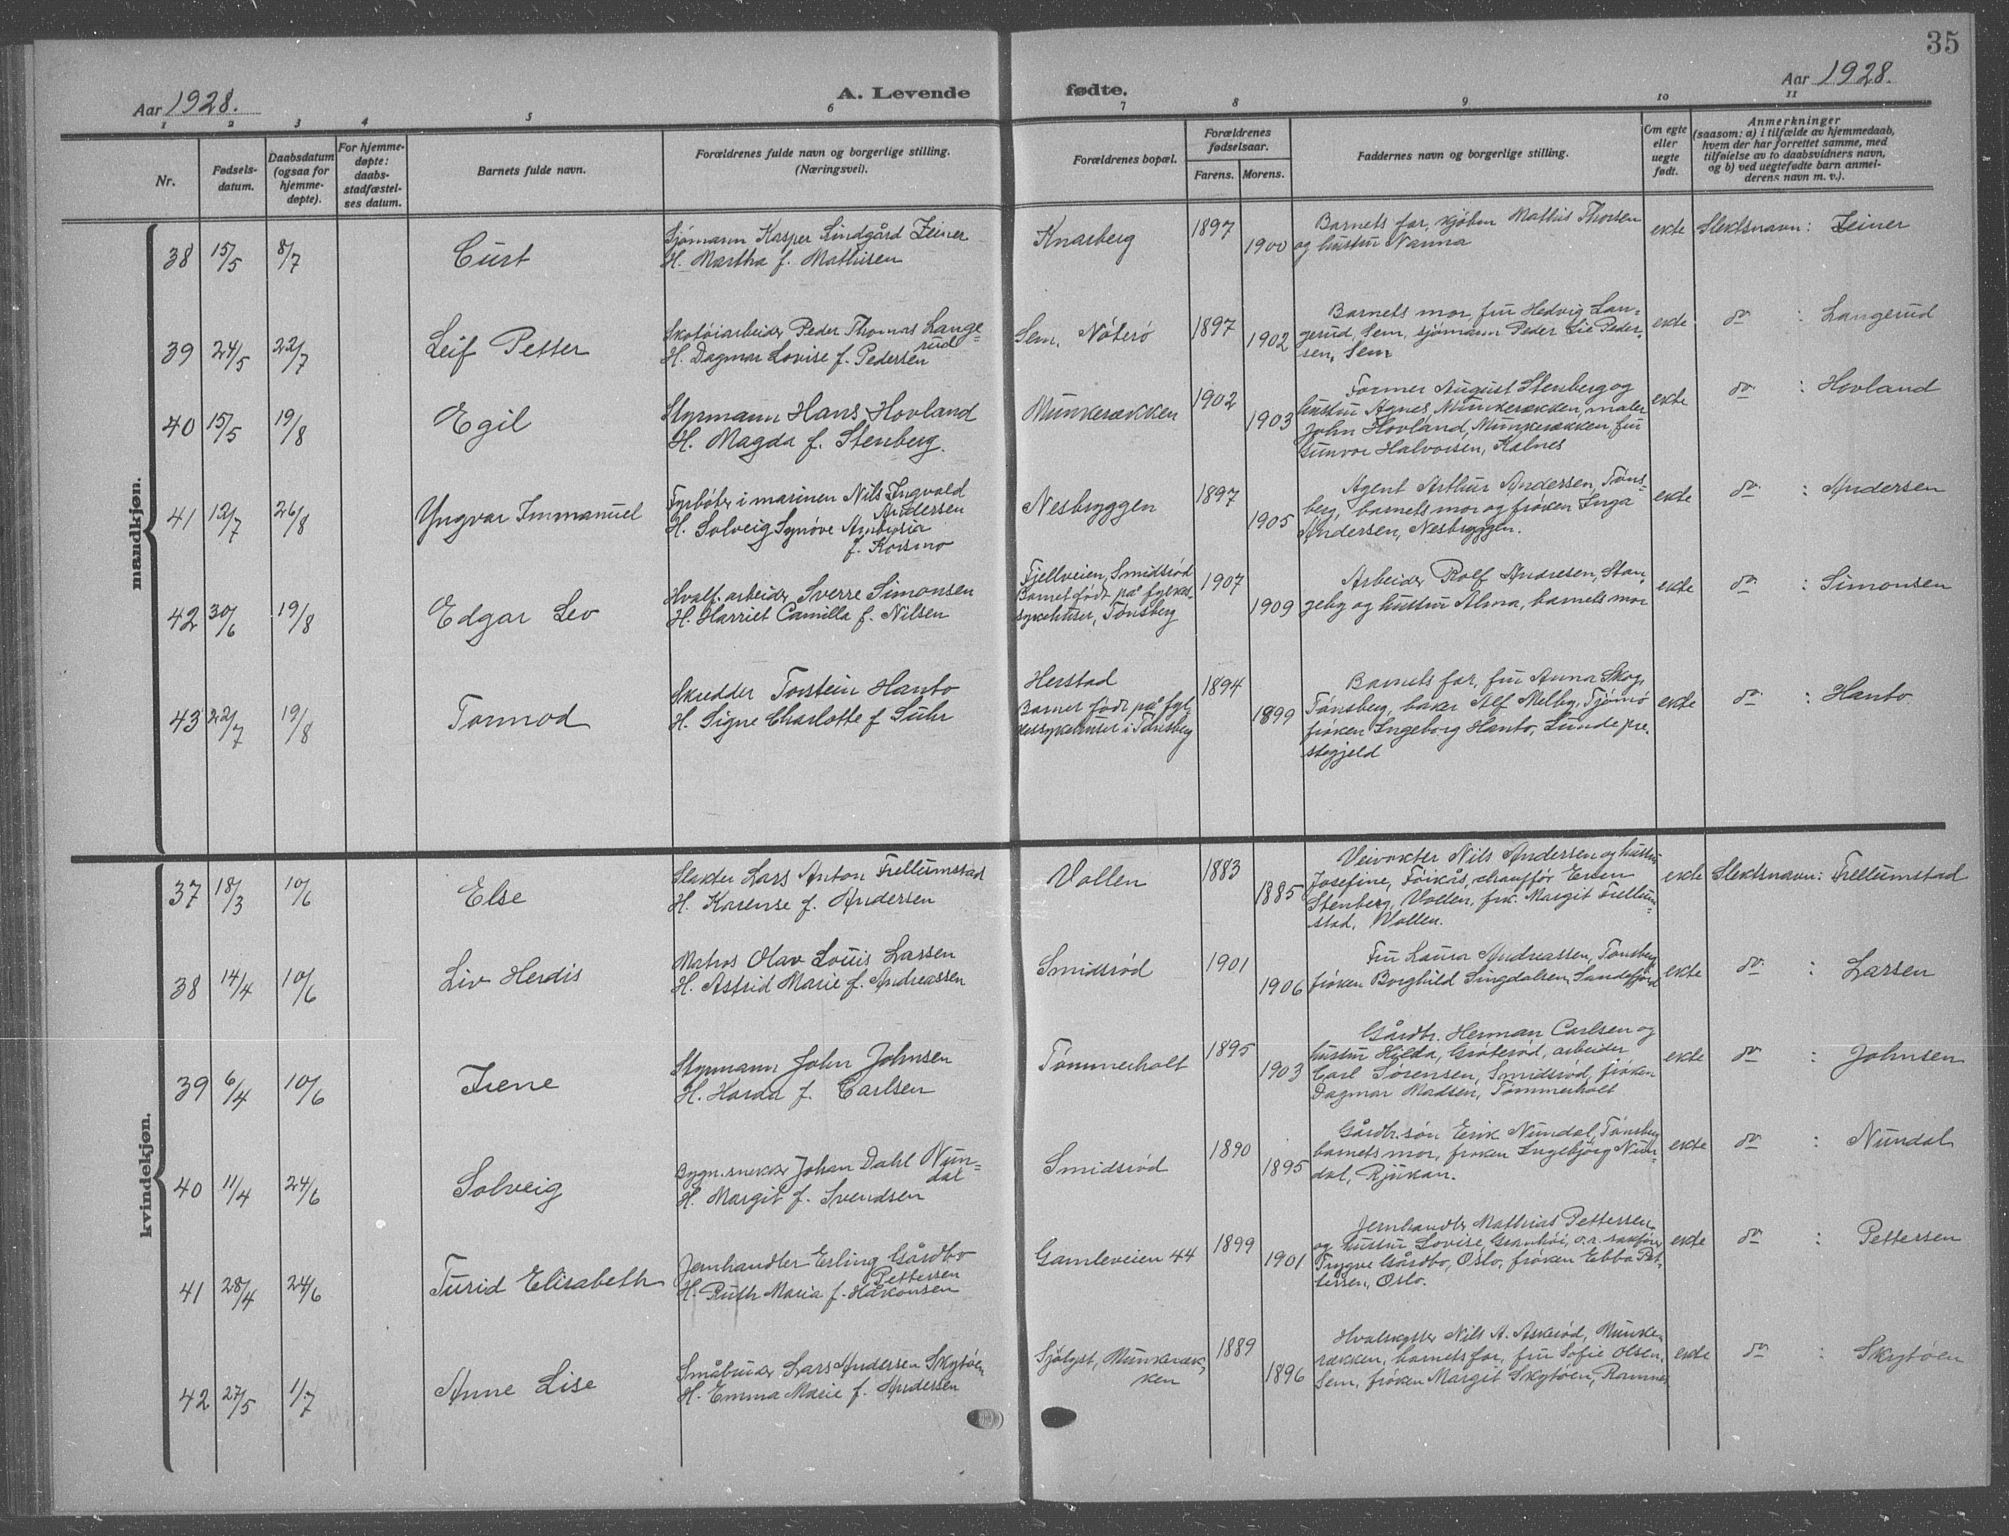 35
Aar 1928.
A. Levende
fødte.
Aar 1928.
1 2 3 4 5 6 7 8 9 10 11
Nr.
Fødsels-
datum.
Daabsdatum
(ogsaa for
hjemme-
døpte).
For hjemme-
døpte:
daabs-
stadfæstel-
ses datum.
Barnets fulde navn.
Forældrenes fulde navn og borgerlige stilling.
(Næringsvei).
Forældrenes bopæl.
Forældrenes
fødselsaar.
Farens. Morens.
Faddernes navn og borgerlige stilling.
Om egte
eller
uegte
født.
Anmerkninger
(saasom: a) i tilfælde av hjemmedaab,
hvem der har forrettet samme, med
tilføielse av to daabsvidners navn,
og b) ved uegtefødte barn anmel-
derens navn m. v.).
mandkjøn.
38 15/5 8/7 Curt
Sjømann Kasper Lindgård Zeiner
H. Martha f. Mathisen
Knarberg 1897 1900
Barnets far, skjøben Mathis Thorsen
og hustru Nanna
ekte Slektsnavn: Zeiner
39 24/5 22/7 Leif Petter
Skotøiarbeider Peder Thomas Lange-
rud
H. Dagmar Lovise f. Pedersen
Sem, Nøterø 1897 1902
Barnets mor, fru Hedvig Lan-
gerud, Sem, sjømann Peder Lie Peder-
sen, Sem
ekte do : Langerud
40 15/5 19/8 Egil
Styrmann Hans Hovland
H. Magda f. Stenberg.
Munkerekken 1902 1903
Former August Stenberg og
hustru Agnes, Munkerekken, maler
John Hovland, Munkerekken, fru
Gunvor Halvorsen, Kalnes
ekte do : Hovland
41 12/7 26/8 Yngvar Immanuel
Fyrbøter i marinen Nils Ingvald
Andersen
H. Solveig Synøve Ambrosia
f. Korsmo
Nesbryggen 1897 1905
Agent Arthur Andersen, Tøns-
berg, barnets mor og frøken Inga
Andersen, Nesbryggen.
ekte do : Andersen
42 30/6 19/8 Edgar Lev
Hvalf. arbeider Sverre Simonsen
H. Harriet Camilla f. Nilsen
Fjellveien, Smidsrød
Barnet født på fylkes-
sykehuset, Tønsberg
1907 1909
Arbeider Rolf Andresen, Stan-
geby og hustru Alma, barnets mor
ekte do : Simonsen
43 22/7 19/8 Tormod
Skredder Torstein Hanto
H. Signe Charlotte f. Suhr
Herstad
Barnet født på fyl-
kessykehuset i Tønsberg
1894 1899
Barnets far, fru Anna Skog,
Tønsberg, baker Alf Melby, Tjømø
frøken Ingeborg Hanto, Lunde pre-
stegjeld
ekte do : Hanto
kvindekjøn.
37 18/3 10/6 Else
Slakter Lars Anton Trellumstad
H. Karense f. Andersen
Vollen 1883 1885
Veivokter Nils Andersen og hustru
Josefine, Føikås, chauffør Einen
Stenberg, Vollen, frk. Margit Trellum-
stad, Vollen.
ekte Slektsnavn: Trellumstad
38 14/4 10/6 Liv Herdis
Matros Olav Louis Larsen
H. Astrid Marie f. Andreassen
Smidsrød 1901 1906
Fru Laura Andreassen, Tønsberg
frøken Borghild Lingdalsen, Sandefjord
ekte do : Larsen
39 6/4 10/6 Irene
Styrmann John Johnsen
H. Harda f. Carlsen
Tømmerholt 1895 1903
Gårdbr. Herman Carlsen og
hustru Hilda, Grøterød, arbeider
Carl Sørensen, Smidsrød, frøken
Dagmar Madsen, Tømmerholt
ekte do : Johnsen
40 11/4 24/6 Solveig
Bygn.snekker Johan Dahl Nun-
dal
H. Margit f. Svendsen
Smidsrød 1890 1895
Gårdbr.søn Erik Nundal, Tønsberg
barnets mor, frøken Ingebjørg Nun-
dal, Rjukan.
ekte do : Nundal
41 28/4 24/6 Turid Elisabeth
Jernhandler Erling Gårdbo
Pettersen
H. Ruth Maria f. Håkonsen
Gamleveien 44 1899 1901
Jernhandler Mathias Pettersen
og hustru Lovise, Granhøi, o.r. sakfører
Trygve Gårdbo, Oslo, frøken Ebba Pet-
tersen, Oslo.
ekte do : Pettersen
42 27/5 1/7 Anne Lise
Småbruker Lars Andersen Skytøen
H. Emma Marie f. Andersen
Sjølyst, Munkerek-
ken
1889 1896
Hvalskytter Nils A. Askerød, Munke-
rekken, barnets far, fru Sofie Olsen,
Sem, frøken Margit Skytøen, Ramnes
ekte do : Skytøen